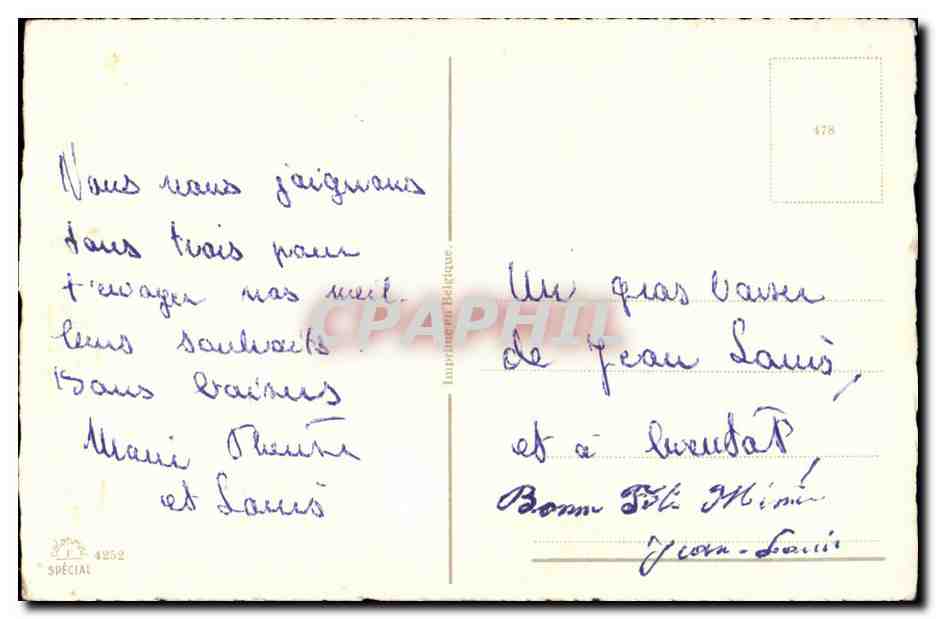 Nous nous joignons
tous trois pour
t'envoyer nos meil.
leurs souhaits.
Bons baisers
Marie Thérèse
et Louis
SPÉCIAL 4252
Imprimé en Belgique.
CPAPHIL
478
Un gros baiser
de Jean Louis,
et à bientôt,
Bonne Fête Mémé
Jean-Louis